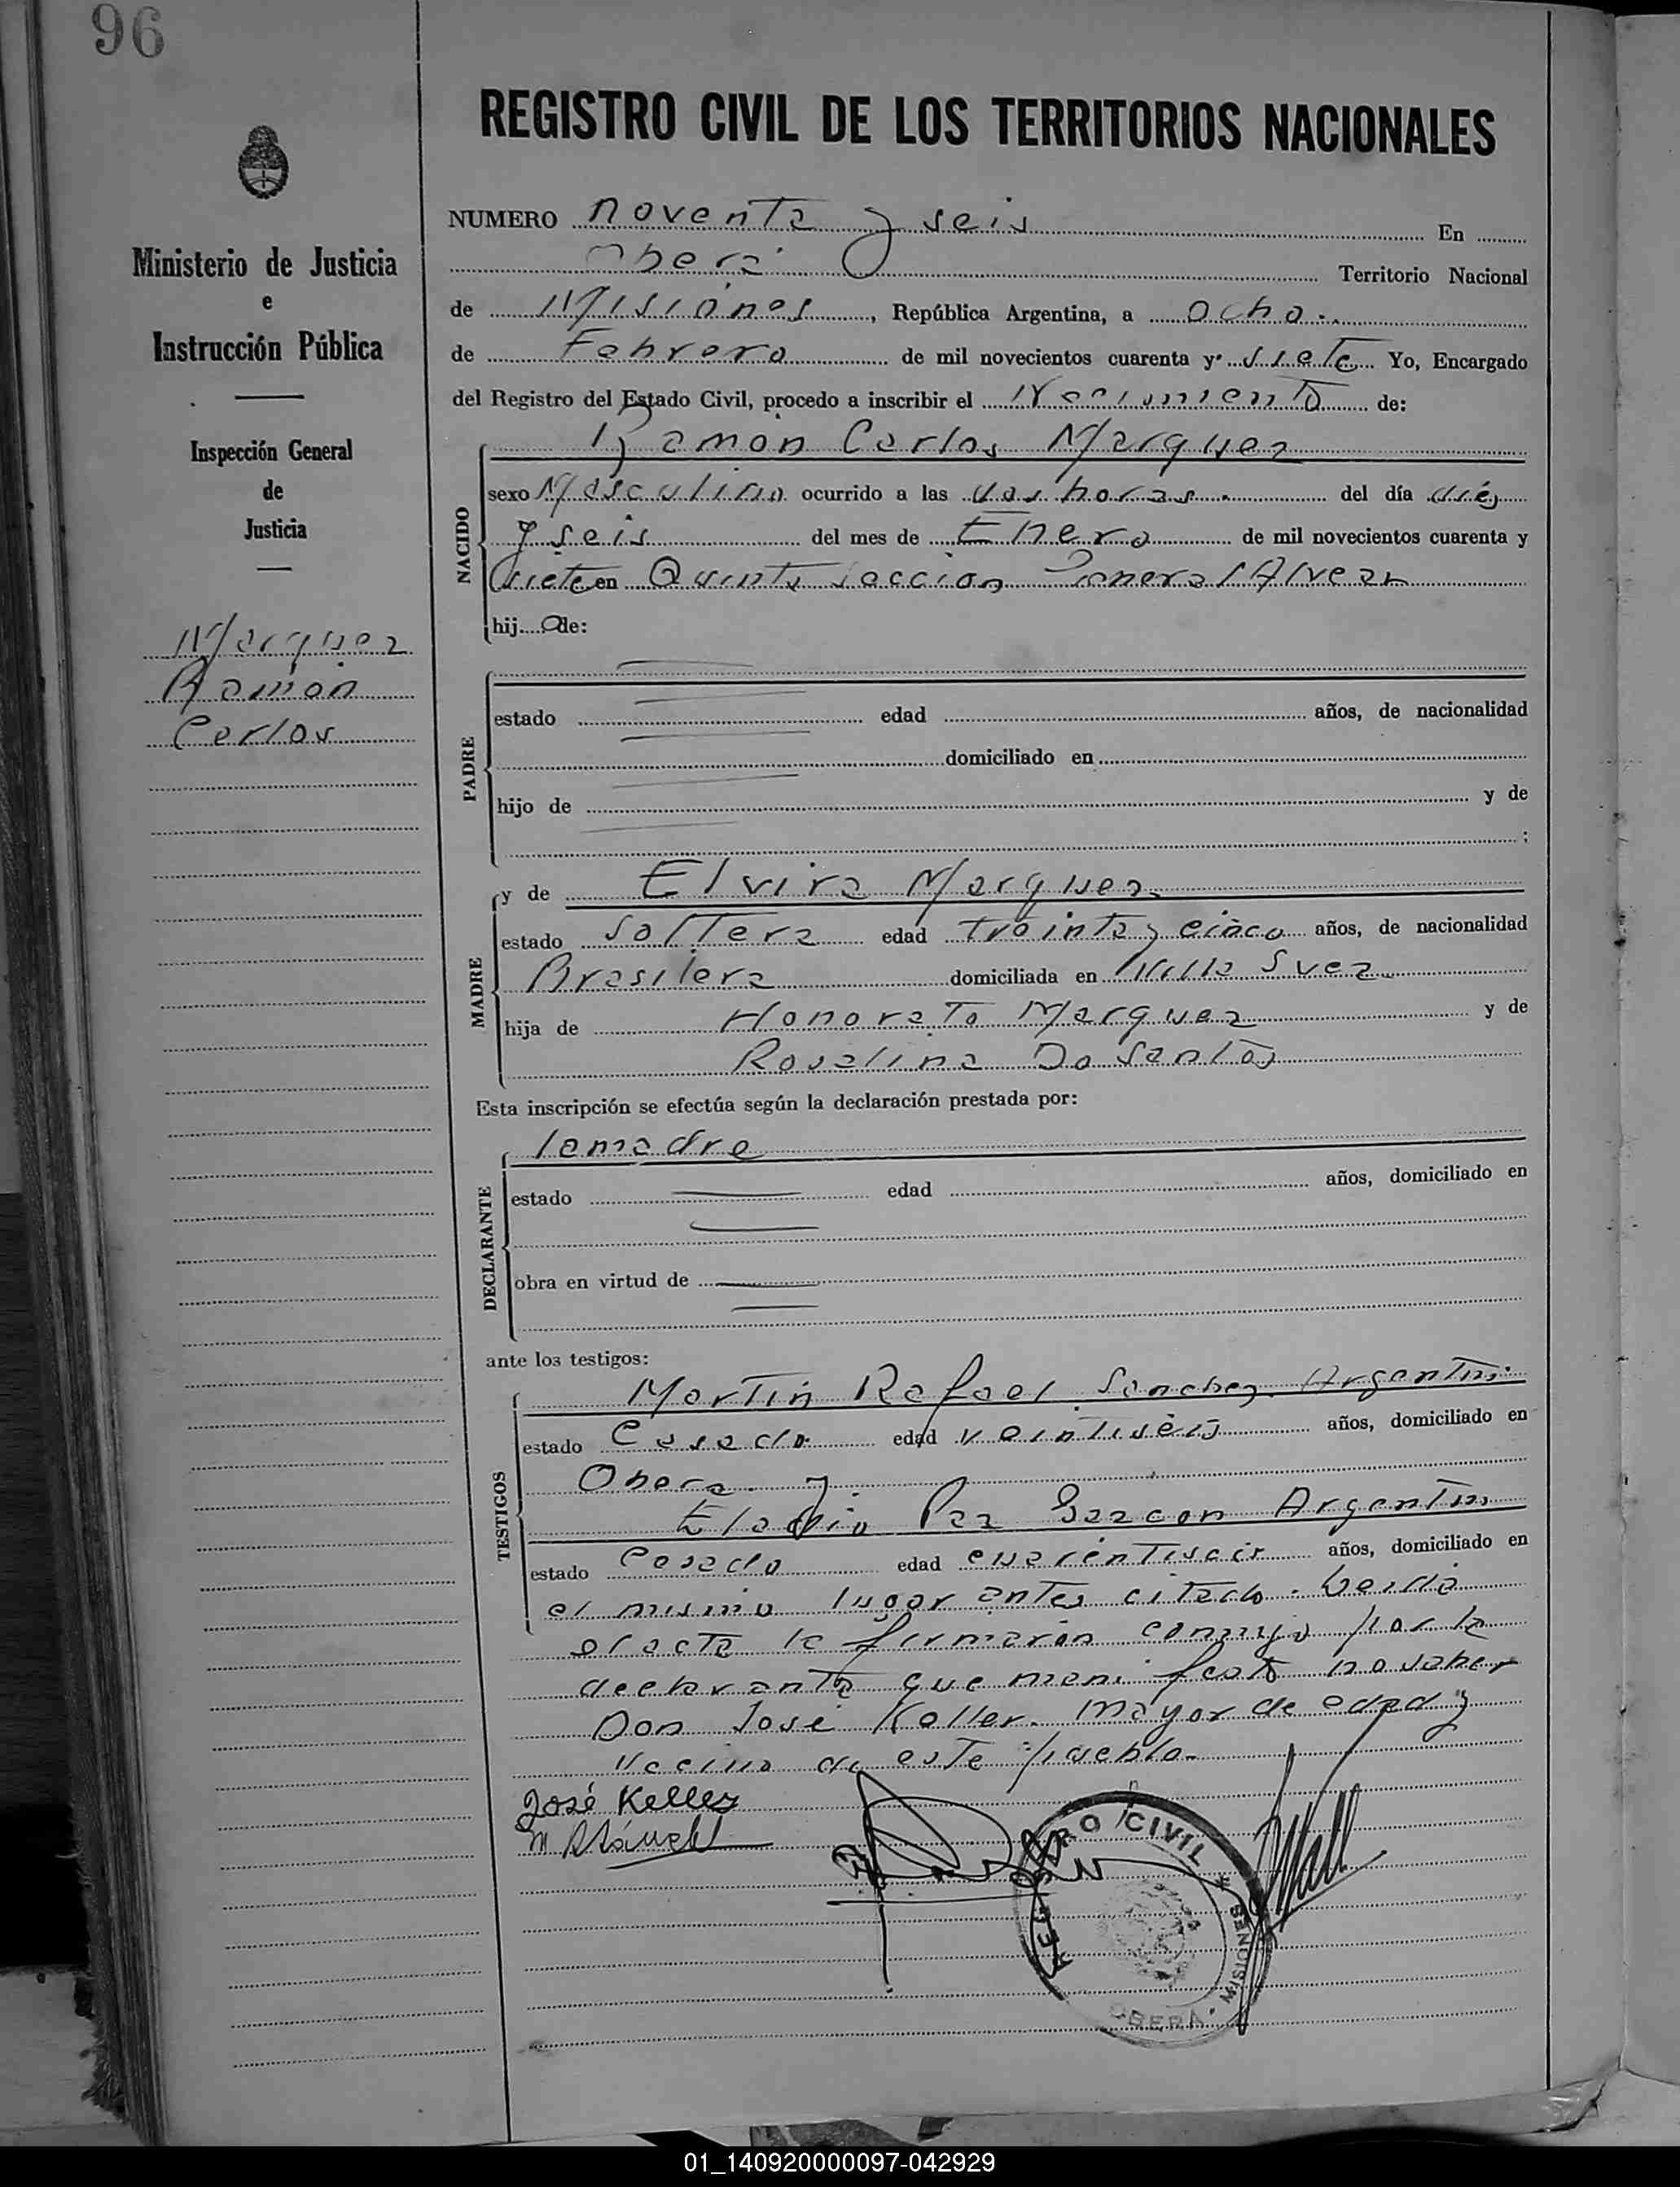 96
REGISTRO CIVIL DE LOS TERRITORIOS NACIONALES
Ministerio de Justicia
e
Instrucción Pública
Inspección General
de
Justicia
Marquez
Ramon
Carlos
NUMERO noventa y seis En
Oberá Territorio Nacional
de Misiones, República Argentina, a ocho.
de Febrero de mil novecientos cuarenta y siete Yo, Encargado
del Registro del Estado Civil, procedo a inscribir el Nacimiento de:
NACIDO
Ramon Carlos Marquez
sexo Masculino ocurrido a las dos horas. del día diéz
y seis del mes de Enero de mil novecientos cuarenta y
siete en Quinta seccion General Alvear
hij o de:
PADRE
estado edad años, de nacionalidad
domiciliado en
hijo de y de
;
MADRE
y de Elvira Marquez
estado Soltera edad treinta y cinco años, de nacionalidad
Brasilera domiciliada en Villa Svea
hija de Honorato Marquez y de
Rosalina Do Santos
Esta inscripción se efectúa según la declaración prestada por:
DECLARANTE
la madre
estado edad años, domiciliado en
obra en virtud de
ante los testigos:
TESTIGOS
Martin Rafael Sanchez. Argentino
estado Casado edad veintiseis años, domiciliado en
Obera. y.
Eladio Paz Garcon Argentino
estado Casado edad cuarentiseis años, domiciliado en
el mismo lugar antes citado. Leida
el acta la firmarón conmigo por la
declarante que manifestó no saber
Don José Keller. mayor de edad y
vecino de este pueblo.
José Keller
REGISTRO CIVIL
MISIONES
OBERÁ
01_140920000097-042929